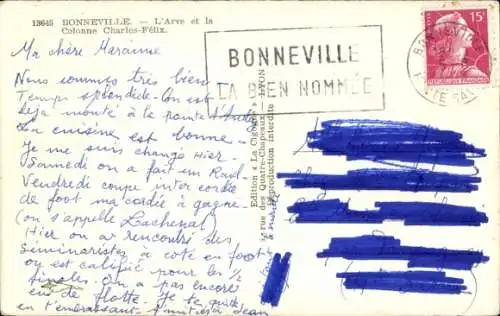 13645 BONNEVILLE. — L'Arve et la
Colonne Charles-Félix.
BONNEVILLE
LA BIEN NOMMÉE
15F
Ma chère Marraine
Nous sommes très bien
Temps splendide. On est
déjà monté à la pointe d'Andey
La cuisine est bonne.
Je me suis changé Hier.
Samedi on a fait un
Vendredi coupe inter cordée
de foot ma cadée a gagné.
(on s'appelle Lachenal)
(Hier on a rencontré des
séminaristes à côté en foot
on est calific pour les ½
finales. On a pas encore
eu de flotte. Je te quitte
en t'embrassant Jean
Edition « La Cigogne »
rue des Quatre-Chapeaux, LYON
Reproduction interdite